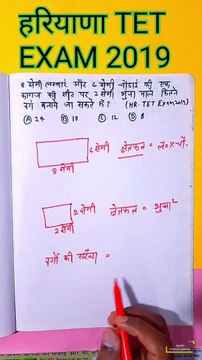 हरियाणा TET
EXAM 2019
8 सेमी लम्बाई और 6 सेमी चौड़ाई की एक
कागज की शीट पर 2 सेमी भुजा वाले कितने
वर्ग बनाये जा सकते है ? (HR. TET Exam 2019)
(A) 24 (B) 18 (C) 12 (D) 8
6 सेमी क्षेत्रफल = ल० × चौ.
8 सेमी
2 सेमी क्षेत्रफल = भुजा²
2 सेमी
वर्गो की संख्या =